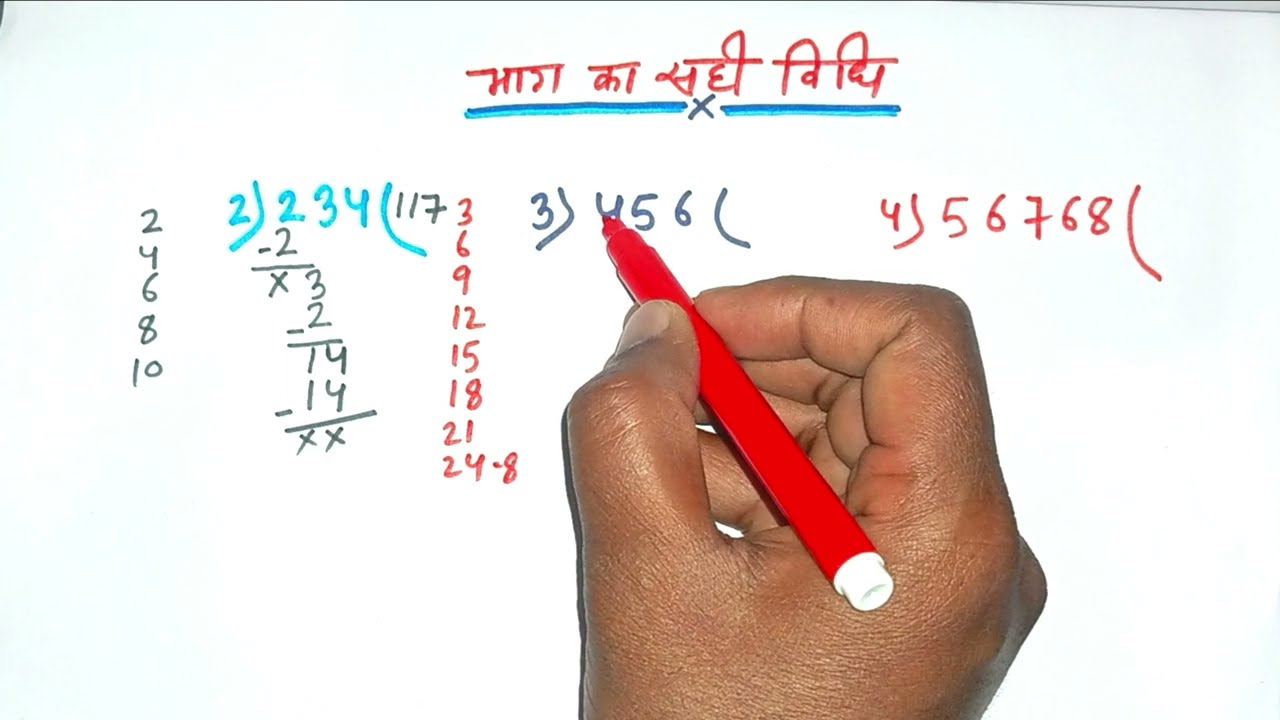 भाग का सही विधि
x
2) 234 ( 117
-2
x 3
-2
14
-14
x x
2
4
6
8
10
3
6
9
12
15
18
21
24-8
3) 456 (
4) 56768 (